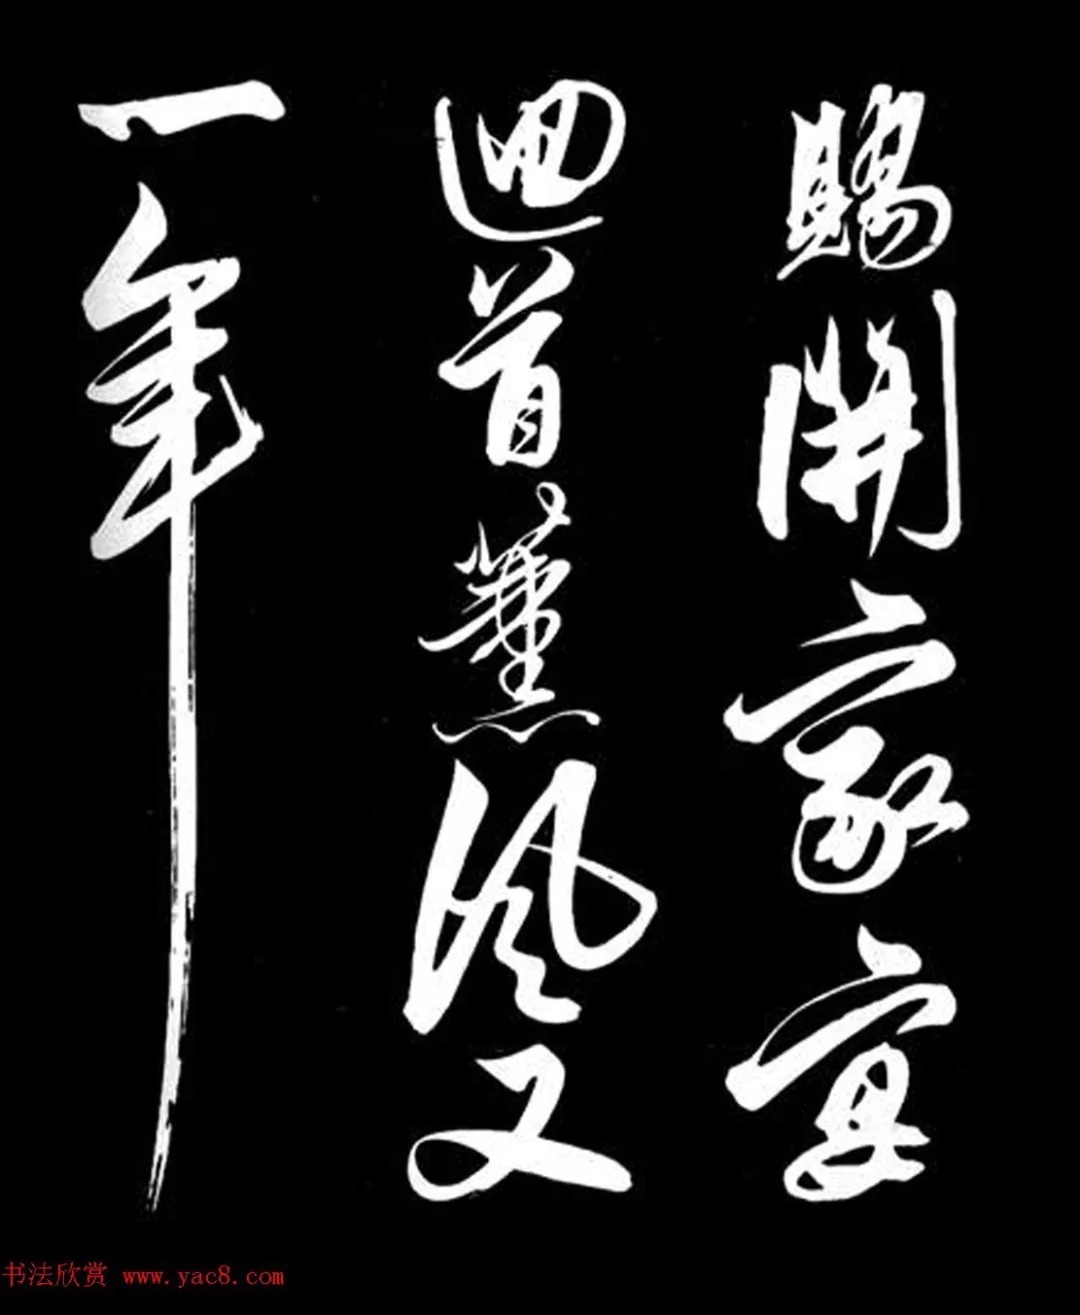 賜開家宴
迴首薰風又
一年
书法欣赏 www.yac8.com